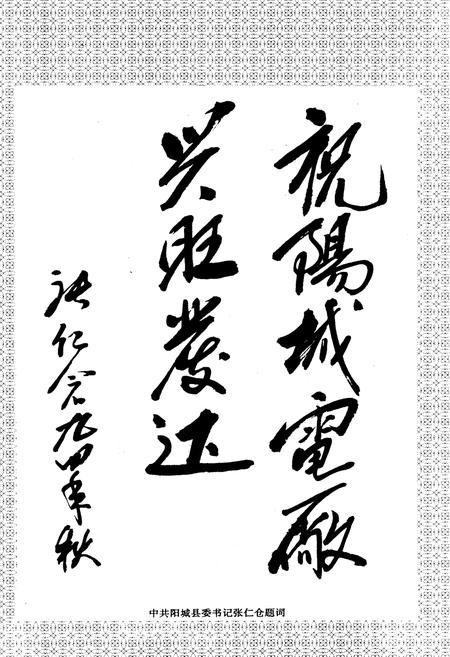 祝陽城電廠
兴旺發达
张仁仓九四年秋
中共阳城县委书记张仁仓题词